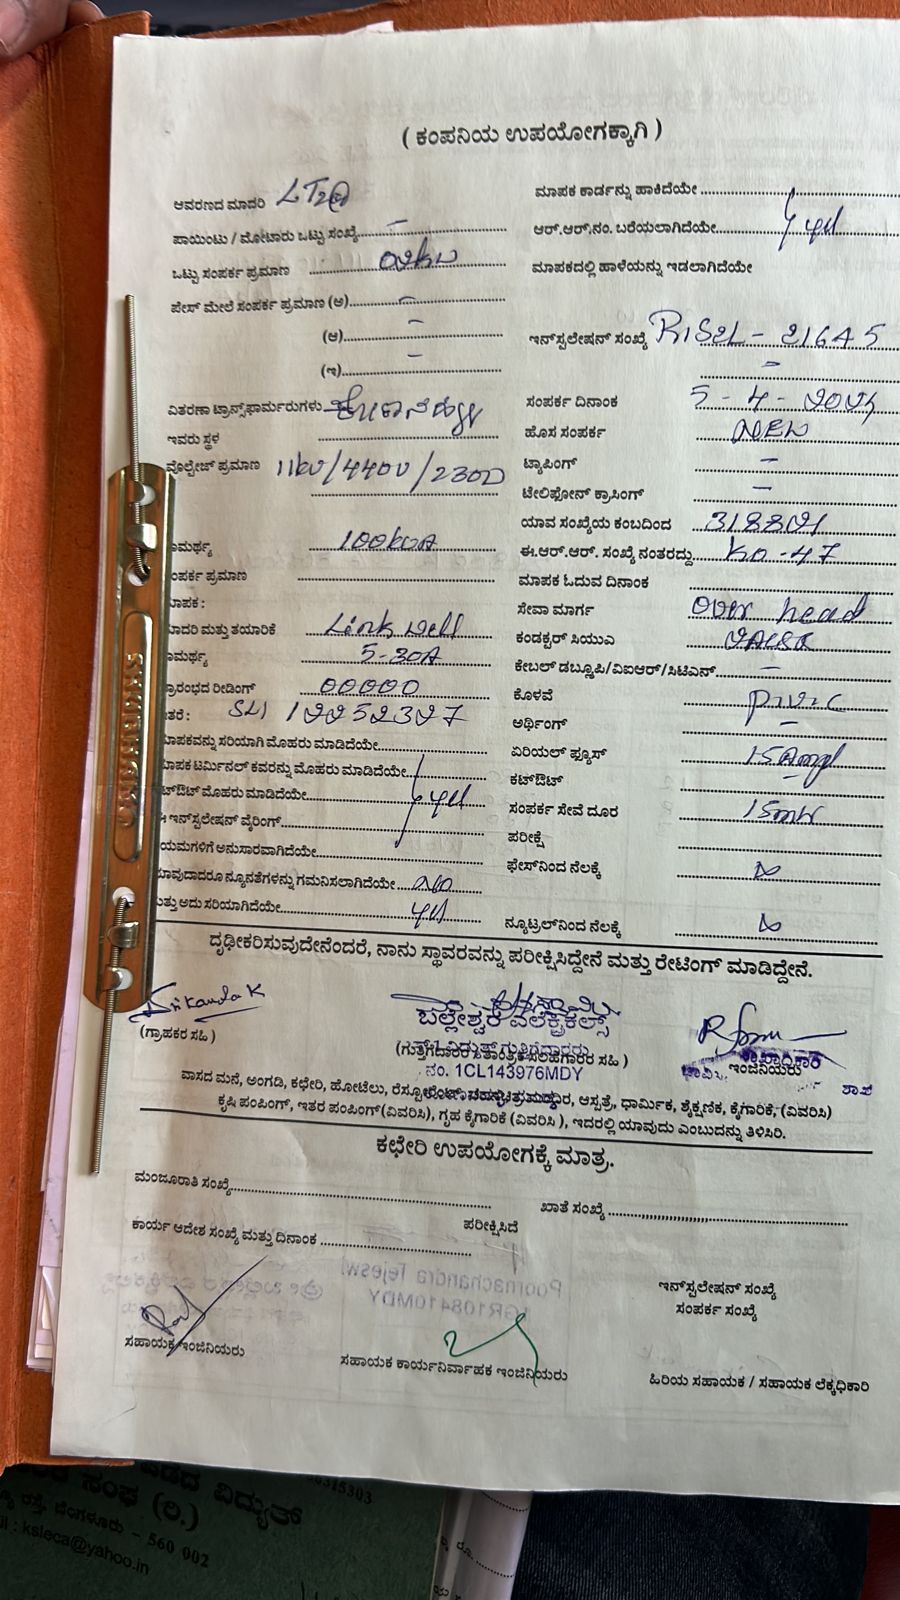 ( ಕಂಪನಿಯ ಉಪಯೋಗಕ್ಕಾಗಿ )
ಆವರಣದ ಮಾದರಿ LT2a
ಪಾಯಿಂಟು / ಮೋಟಾರು ಒಟ್ಟು ಸಂಖ್ಯೆ -
ಒಟ್ಟು ಸಂಪರ್ಕ ಪ್ರಮಾಣ 02kw
ಪೇಸ್ ಮೇಲೆ ಸಂಪರ್ಕ ಪ್ರಮಾಣ (ಅ) -
(ಆ) -
(ಇ) -
ವಿತರಣಾ ಟ್ರಾನ್ಸ್‌ಫಾರ್ಮರುಗಳು
ಇವರು ಸ್ಥಳ
ವೊಲ್ಟೇಜ್ ಪ್ರಮಾಣ 11kv/440v/230v
ಾಮರ್ಥ್ಯ 100kvA
ಂಪರ್ಕ ಪ್ರಮಾಣ
ಾಪಕ :
ಾದರಿ ಮತ್ತು ತಯಾರಿಕೆ Link well
ಾಮರ್ಥ್ಯ 5-30A
್ರಾರಂಭದ ರೀಡಿಂಗ್ 00000
ತರೆ : SL1 12252327
ಾಪಕವನ್ನು ಸರಿಯಾಗಿ ಮೊಹರು ಮಾಡಿದೆಯೇ
ಾಪಕ ಟರ್ಮಿನಲ್ ಕವರನ್ನು ಮೊಹರು ಮಾಡಿದೆಯೇ
ಟ್‌ಔಟ್ ಮೊಹರು ಮಾಡಿದೆಯೇ yes
ಇನ್‌ಸ್ಟಲೇಷನ್ ವೈರಿಂಗ್
ಯಮಗಳಿಗೆ ಅನುಸಾರವಾಗಿದೆಯೇ
ಾವುದಾದರೂ ನ್ಯೂನತೆಗಳನ್ನು ಗಮನಿಸಲಾಗಿದೆಯೇ No
ಮತ್ತು ಅದು ಸರಿಯಾಗಿದೆಯೇ yes
ಮಾಪಕ ಕಾರ್ಡನ್ನು ಹಾಕಿದೆಯೇ
ಆರ್.ಆರ್.ನಂ. ಬರೆಯಲಾಗಿದೆಯೇ yes
ಮಾಪಕದಲ್ಲಿ ಹಾಳೆಯನ್ನು ಇಡಲಾಗಿದೆಯೇ
ಇನ್‌ಸ್ಟಲೇಷನ್ ಸಂಖ್ಯೆ R1S2L - 21645
-
ಸಂಪರ್ಕ ದಿನಾಂಕ 5-4-2025
ಹೊಸ ಸಂಪರ್ಕ NEW
ಟ್ಯಾಪಿಂಗ್ -
ಟೆಲಿಫೋನ್ ಕ್ರಾಸಿಂಗ್ -
ಯಾವ ಸಂಖ್ಯೆಯ ಕಂಬದಿಂದ
ಈ.ಆರ್.ಆರ್. ಸಂಖ್ಯೆ ನಂತರದ್ದು KO-47
ಮಾಪಕ ಓದುವ ದಿನಾಂಕ
ಸೇವಾ ಮಾರ್ಗ over head
ಕಂಡಕ್ಟರ್ ಸಿಯುಎ
ಕೇಬಲ್ ಡಬ್ಲೂಪಿ/ವಿಐಆರ್/ಸಿಟಿಎನ್ -
ಕೊಳವೆ P.V.C
ಅರ್ಥಿಂಗ್ -
ಏರಿಯಲ್ ಫ್ಯೂಸ್ 15Amp
ಕಟ್‌ಔಟ್ -
ಸಂಪರ್ಕ ಸೇವೆ ದೂರ
ಪರೀಕ್ಷೆ
ಫೇಸ್‌ನಿಂದ ನೆಲಕ್ಕೆ
ನ್ಯೂಟ್ರಲ್‌ನಿಂದ ನೆಲಕ್ಕೆ
ದೃಢೀಕರಿಸುವುದೇನೆಂದರೆ, ನಾನು ಸ್ಥಾವರವನ್ನು ಪರೀಕ್ಷಿಸಿದ್ದೇನೆ ಮತ್ತು ರೇಟಿಂಗ್ ಮಾಡಿದ್ದೇನೆ.
Srikanda K
ಬಲ್ಲೇಶ್ವರ ಎಲೆಕ್ಟ್ರಿಕಲ್ಸ್
(ಗ್ರಾಹಕರ ಸಹಿ )
(ಗುತ್ತಿಗೆದಾರರ ತಾಂತ್ರಿಕ ಸಲಹೆಗಾರರ ಸಹಿ )
ನಂ. 1CL143976MDY
ಶಾಖಾಧಿಕಾರಿ
ಇಂಜಿನಿಯರು
ಶಾಖೆ
ವಾಸದ ಮನೆ, ಅಂಗಡಿ, ಕಛೇರಿ, ಹೋಟೆಲು, ಆಸ್ಪತ್ರೆ, ಧಾರ್ಮಿಕ, ಶೈಕ್ಷಣಿಕ, ಕೈಗಾರಿಕೆ, (ವಿವರಿಸಿ)
ಕೃಷಿ ಪಂಪಿಂಗ್, ಇತರ ಪಂಪಿಂಗ್(ವಿವರಿಸಿ), ಗೃಹ ಕೈಗಾರಿಕೆ (ವಿವರಿಸಿ ), ಇದರಲ್ಲಿ ಯಾವುದು ಎಂಬುದನ್ನು ತಿಳಿಸಿರಿ.
ಕಛೇರಿ ಉಪಯೋಗಕ್ಕೆ ಮಾತ್ರ.
ಮಂಜೂರಾತಿ ಸಂಖ್ಯೆ
ಖಾತೆ ಸಂಖ್ಯೆ
ಕಾರ್ಯ ಆದೇಶ ಸಂಖ್ಯೆ ಮತ್ತು ದಿನಾಂಕ
ಪರೀಕ್ಷಿಸಿದೆ
ಇನ್‌ಸ್ಟಲೇಷನ್ ಸಂಖ್ಯೆ
ಸಂಪರ್ಕ ಸಂಖ್ಯೆ
ಸಹಾಯಕ ಇಂಜಿನಿಯರು
ಸಹಾಯಕ ಕಾರ್ಯನಿರ್ವಾಹಕ ಇಂಜಿನಿಯರು
ಹಿರಿಯ ಸಹಾಯಕ / ಸಹಾಯಕ ಲೆಕ್ಕಧಿಕಾರಿ
ವಿದ್ಯುತ್
ಸಂಘ (ರಿ.)
ರಸ್ತೆ, ಬೆಂಗಳೂರು - 560 002
ksleca@yahoo.in